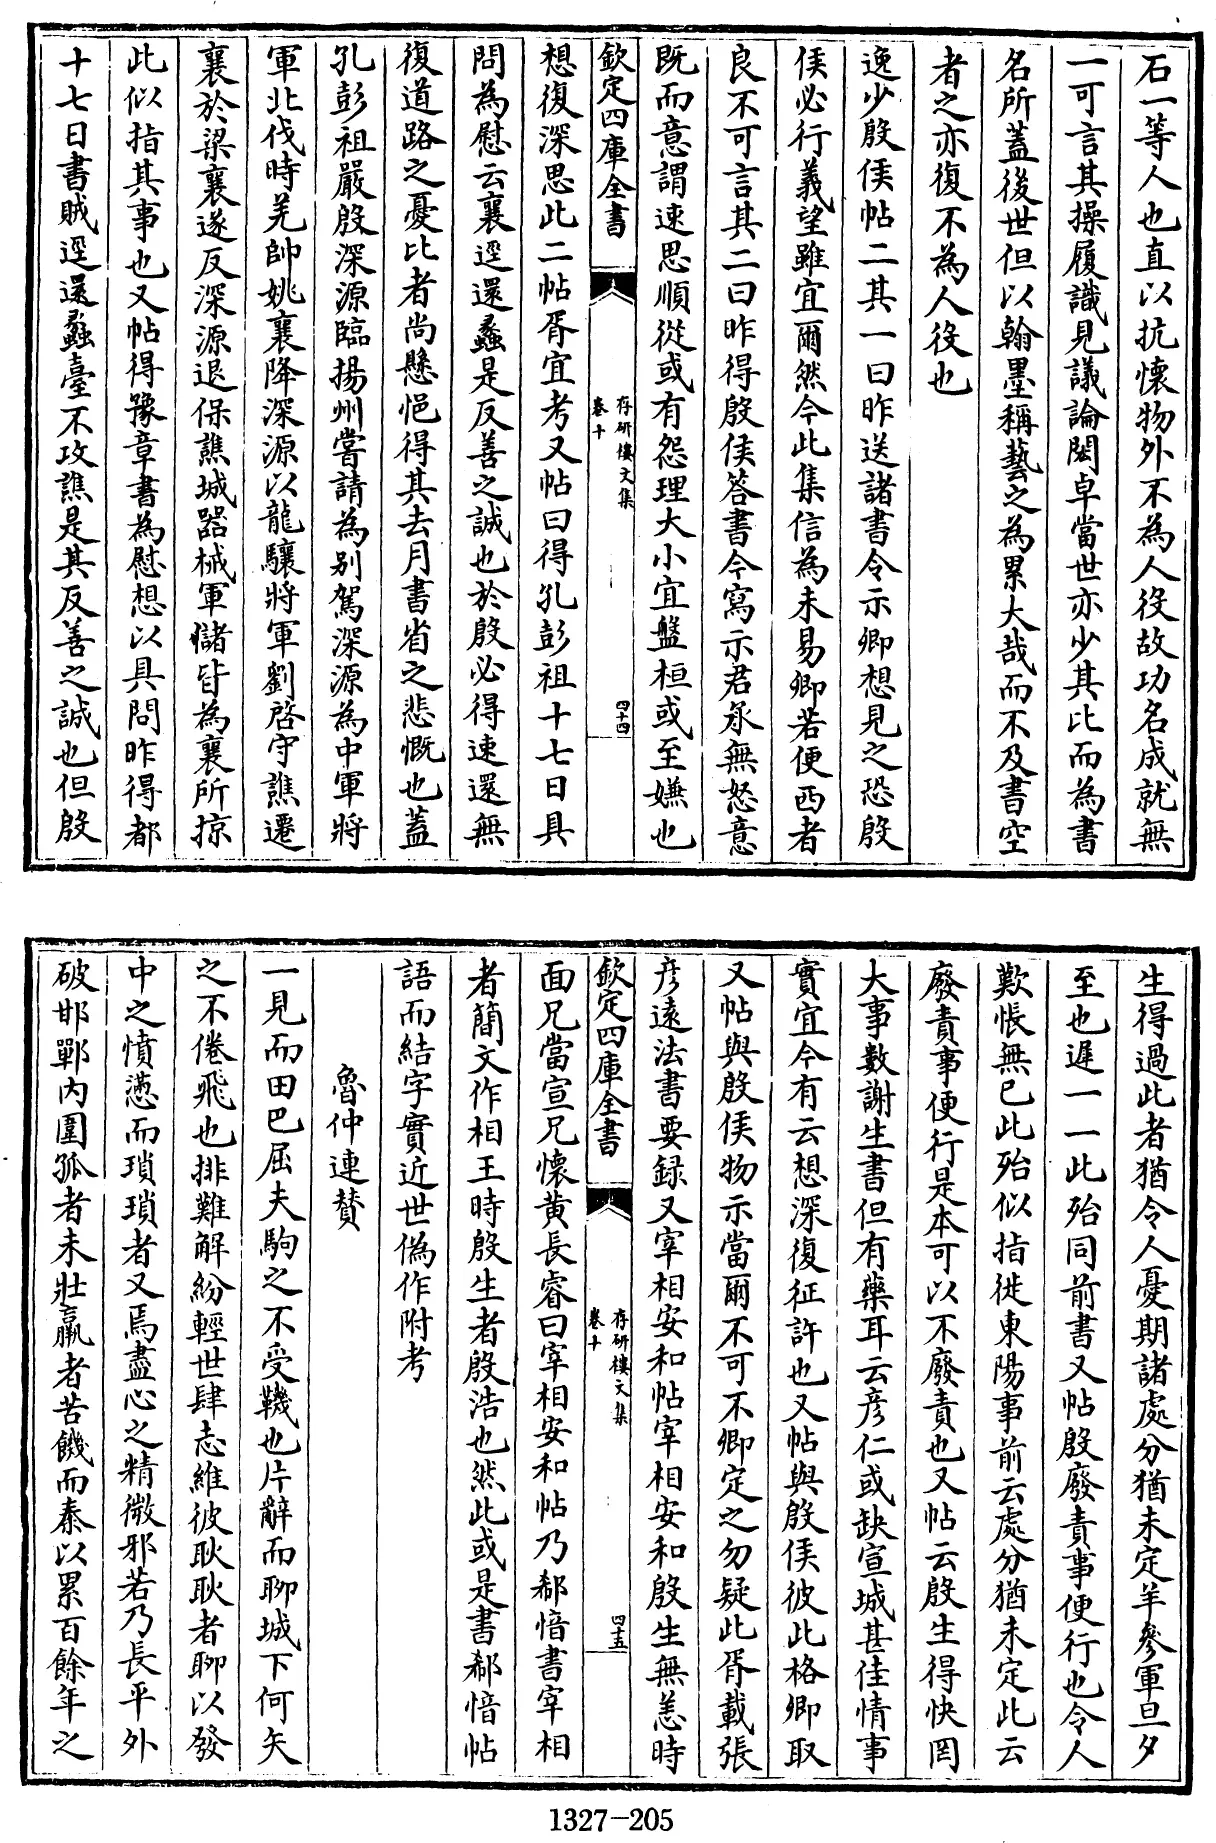 石一等人也直以抗懷物外不為人役故功名成就無
一可言其操履識見議論閎卓當世亦少其比而為書
名所蓋後世但以翰墨稱藝之為累大哉而不及書空
者之亦復不為人役也
逸少殷侯帖二其一曰昨送諸書令示卿想見之恐殷
侯必行義望雖宜爾然今此集信為未易卿若便西者
良不可言其二曰昨得殷侯答書今寫示君承無怒意
既而意謂速思順從或有怨理大小宜盤桓或至嫌也
欽定四庫全書
存研樓文集
卷十
四十四
想復深思此二帖胥宜考又帖曰得孔彭祖十七日具
問為慰云襄逕還蠡是反善之誠也於殷必得速還無
復道路之憂比者尚懸悒得其去月書省之悲慨也蓋
孔彭祖嚴殷深源臨揚州嘗請為別駕深源為中軍將
軍北伐時羌帥姚襄降深源以龍驤將軍劉啓守譙遷
襄於梁襄遂反深源退保譙城器械軍儲皆為襄所掠
此似指其事也又帖得豫章書為慰想以具問昨得都
十七日書賊逕還蠡臺不攻譙是其反善之誠也但殷
生得過此者猶令人憂期諸處分猶未定羊參軍旦夕
至也遲一一此殆同前書又帖殷廢責事便行也令人
歎悵無已此殆似指徙東陽事前云處分猶未定此云
廢責事便行是本可以不廢責也又帖云殷生得快罔
大事數謝生書但有藥耳云彦仁或缺宣城甚佳情事
實宜今有云想深復征許也又帖與殷侯彼此格卿取
又帖與殷侯物示當爾不可不卿定之勿疑此胥載張
彦遠法書要録又宰相安和帖宰相安和殷生無恙時
欽定四庫全書
存研樓文集
卷十
四十五
面兄當宣兄懷黄長睿曰宰相安和帖乃郗愔書宰相
者簡文作相王時殷生者殷浩也然此或是書郗愔帖
語而結字實近世偽作附考
魯仲連贊
一見而田巴屈夫駒之不受鞿也片辭而聊城下何矢
之不倦飛也排難解紛輕世肆志維彼耿耿者聊以發
中之憤懣而瑣瑣者又焉盡心之精微邪若乃長平外
破邯鄲内圍孤者未壯羸者苦饑而秦以累百餘年之
1327-205